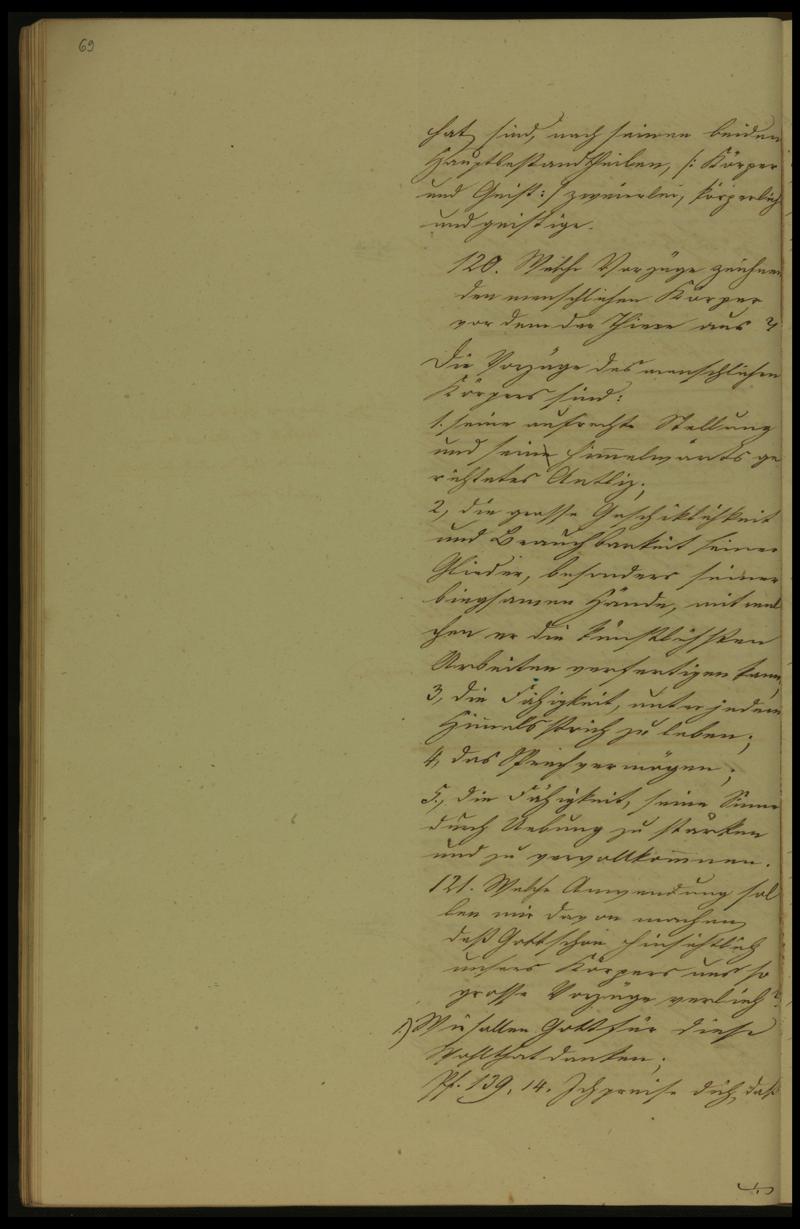 69
hat, sind, nach seinen beiden
Hauptbestandtheilen, /: Körper
und Geist :/ zweierlei, körperlich
und geistige.
120. Welche Vorzüge zeichnen
den menschlichen Körper
vor dem der Thiere aus?
Die Vorzüge des menschlichen
Körpers sind:
1. seine aufrechte Stellung
und sein himmelwärts ge
richtetes Antliz;
2, die grosse Geschiklichkeit
und Brauchbarkeit seiner
Glieder, besonders seiner
biegsamen Hände, mit wel
chen er die künstlichsten
Arbeiten verfertigen kann,
3, die Fähigkeit, unter jedem
Himmelsstrich zu leben;
4, das Sprachvermögen;
5., die Fähigkeit, seine Sinne
durch Uebung zu stärken
und zu vervollkommnen.
121. Welche Anwendung sol
len wir davon machen,
daß Gott schon hinsichtlich
unsers Körpers uns so
grosse Vorzüge verlieh?
1) Wir sollen Gott für diese
Wohlthat danken;
Ps. 139, 14. Ich preise dich, daß